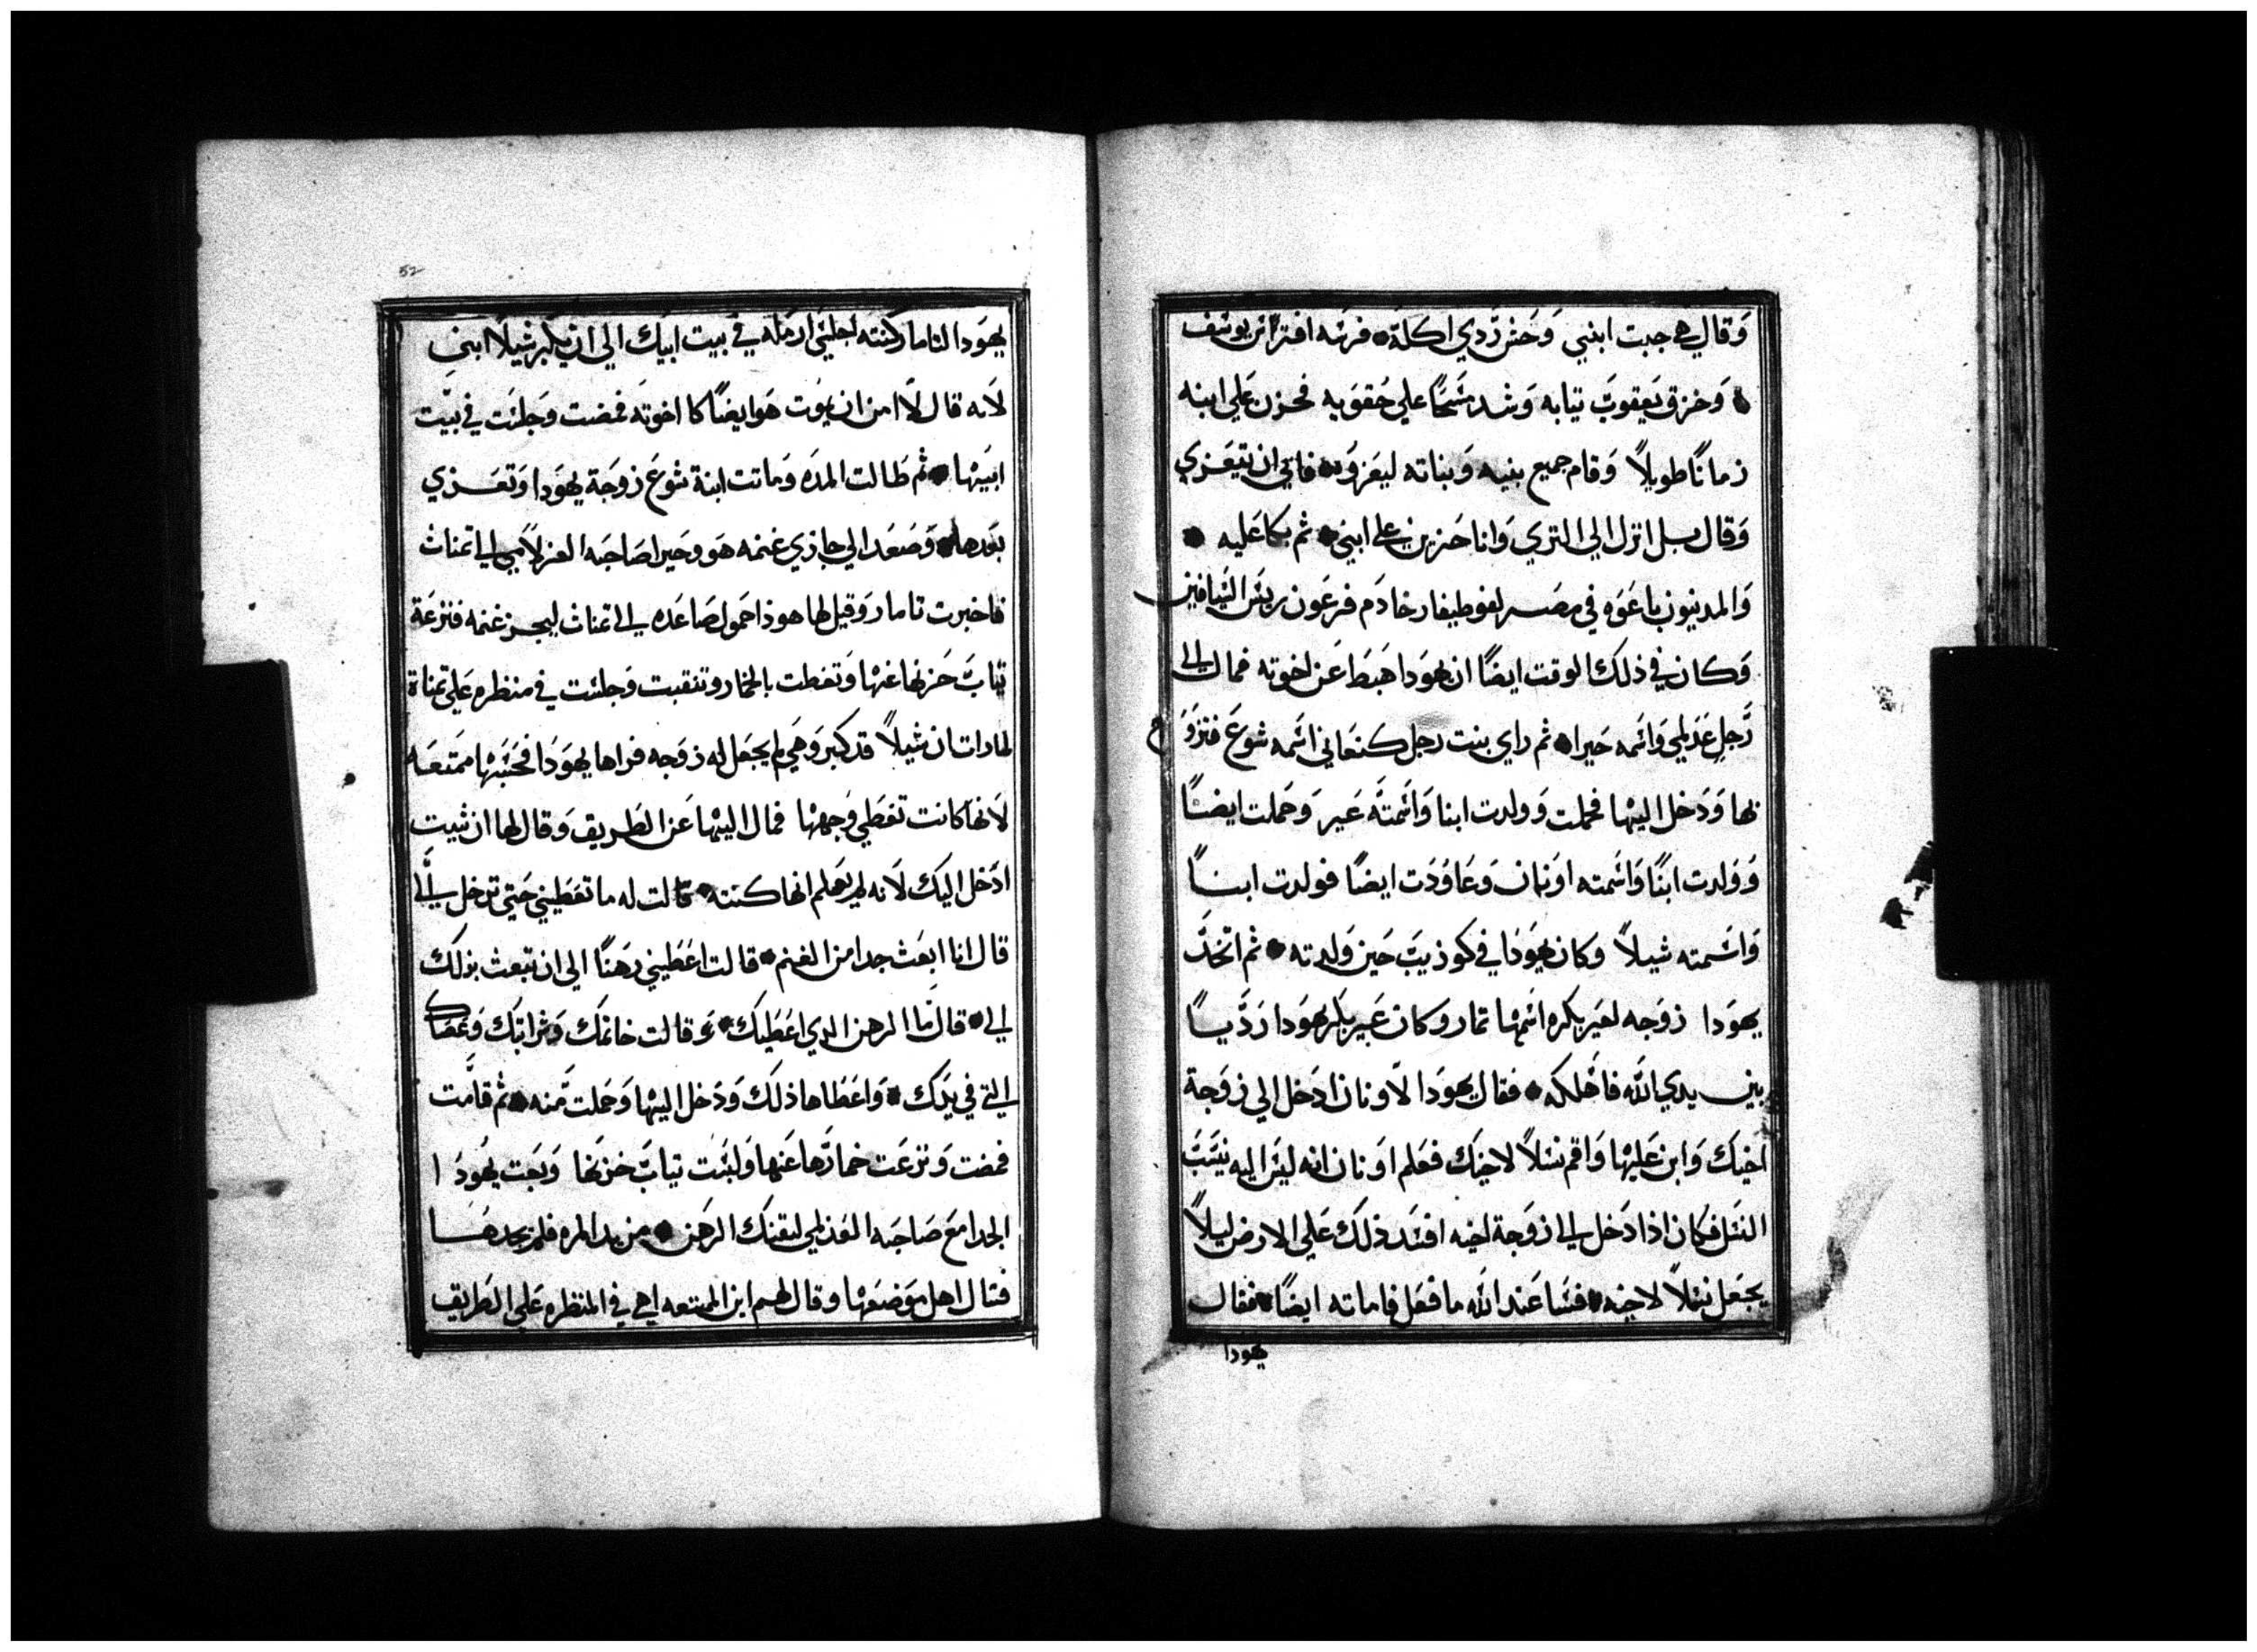 وَقال هي جبت ابني وَحَش رَّدي اكلهَ فرسَه افترَس يوسَف
وَخزق يَعقوبَ تيابه وَشد مسَّحًا علي حُقوَيه فحزن عَلي ابنه
زمانًا طويلاً وَقام جميع بنيه وَبناته ليعَزوُه فابي ان يتعَزي
وَقال بل انزل الي التري وَانا حَزين علي ابني ثم بكا عَليه
وَالمدينيون باعَوَه في مصَر لفوطيفار خادَم فرعَون ريسَ السَيافين
وَكان في ذلكَ الوقت ايضًا ان يهوَدا هَبَط عَن اخوته فمال الي
رَّجل عَدَلمي وَاسَمه حَيرا ثم راي بنت رجل كنعَاني اسَمه شوعَ فتزوَج
بها وَدَخل اليهَا فحملت وَولدت ابنا وَاسَمتَه عَير وَحَملت ايضًا
وَوَلدت ابنًا وَاسَمته اوَنان وَعَاوُدَت ايضًا فولدت ابنًا
وَاسَمته شيلاً وَكان يهوَدَا في كوذيبَ حَين وَلدته ثم اتخَذَ
يهوَدا زوَجه لعَير بكره اسَمهَا تمار وكان عَير بكر يهَودا رَدَّيًا
بين يدي الله فاهَلكه فقال يهوَدا لاَونان ادَخل الي زوَجة
اخيكَ وَابن عَليهَا وَاقم نسَلاً لاخيكَ فعَلم اوَنان انه ليسَ اليه ينسَبَ
النسَل فكان اذا دَخل الي زوَجة اخيه افسَد ذلكَ عَلي الارض ليلاً
يجعَل نسَلاً لاخيه فسَا عَند الله ما فعَل فاماته ايضًا فقال
يهودا
52
يهوَدا لتامار كنته اجلسَي ارمَله في بَيت ابيَك الي ان يكبر شيلاً ابني
لاَنه قال لاَ امن ان يموُت هَو ايضًا كا اخوته فمضت وَجلسَت في بيَت
ابيَهَا ثم طَالت المدَه وَماتت ابنة شوعَ زوجَة يهوَدا وَتعَزي
بعَدها وَصَعَد الي جاذي غنمه هَو وحَيرا صَاحَبه العَزلاَمي الي تمناث
فاخبرت تامار وَقيل لها هوذا حَموَك صَاعَد الي تمناث ليجز غنمه فنزعَة
تيابَ حَزنها عَنهَا وَتغطت بالخمار وتنقبت وَجلسَت في منظره عَلي تمناة
لما رات ان شيلاً قد كبر وَهي لم يجعَل له زوَجه فراها يهوَدَا فحَسَبهَا ممَتعَه
لاَنها كانت تغطَي وَجههَا فمال اليهَا عَن الطَريق وَقال لها ان شيت
ادَخل اليك لاَنه لم يعَلم انها كنته قالت له ما تعَطيني حَتي تدَخل الَي
قال انا ابعَث جدا من الغنم قالت اعَطَيني رهَنًا الي ان تبعث بذلَك
الي قال مَا الرهن الدي اعَطَيكَ وَ قالت خاتمَك وَشرابتَك وَعَصَاك
التي في يدَكَ وَاعَطَاها ذلَك وَدَخل اليهَا وَحَملت مَّنه ثم قامَّت
فمضت وَنزعَت خمارَها عَنها وَلبسَت تيابَ حَزنها وَبَعت يهُودَا
الجدا معَ صَاحَبه العَذلمي ليقبَك الرَهَن من يد المره فلم يجدهَا
فسَال اهل موَضعَهَا وقال لهم اين الممتعه اهي في المنظره عَلي الطَريق